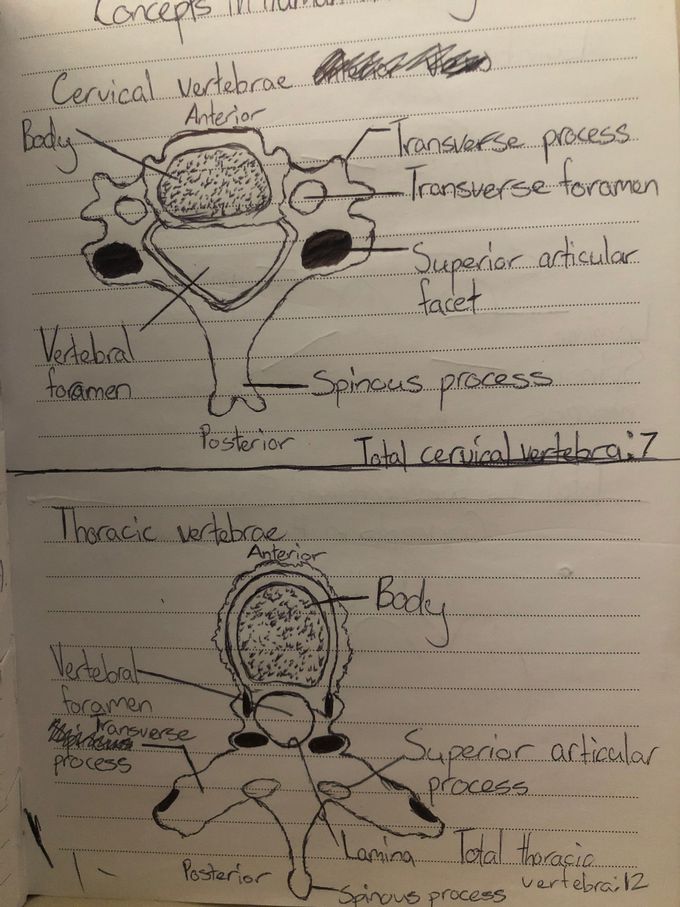 Concepts in human
Cervical vertebrae
Anterior
Body
Transverse process
Transverse foramen
Superior articular
facet
Vertebral
foramen
Spinous process
Posterior
Total cervical vertebra: 7
Thoracic vertebrae
Anterior
Body
Vertebral
foramen
Transverse
process
Superior articular
process
Lamina
Total thoracic
vertebra: 12
Posterior
Spinous process